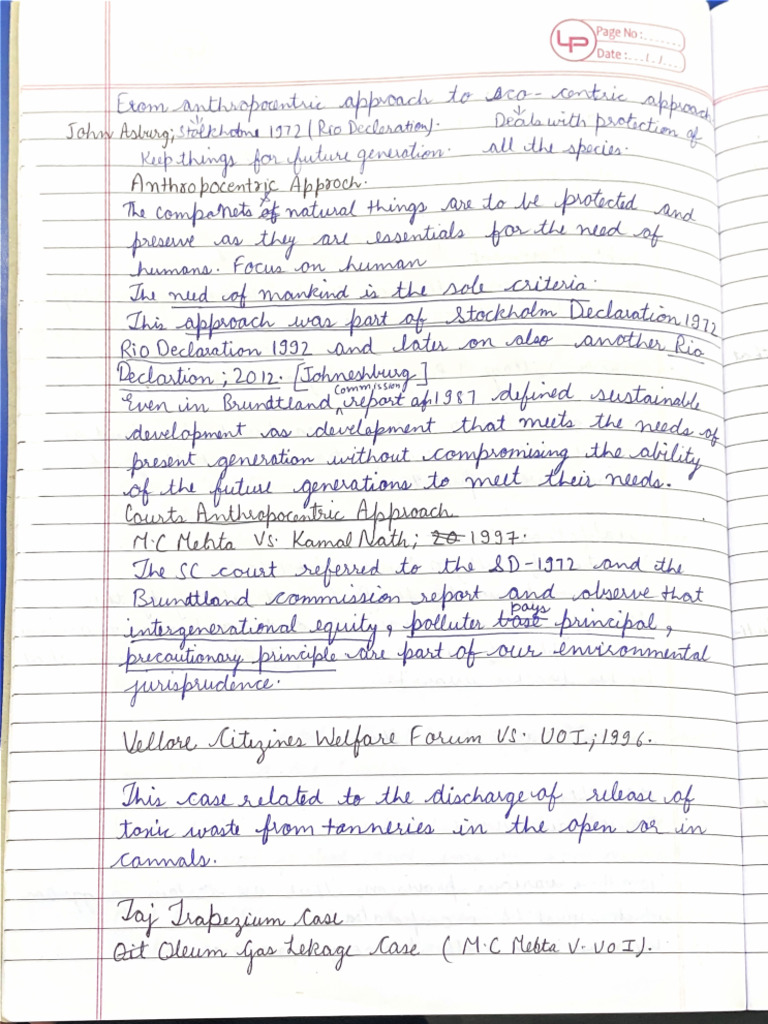 LP Page No:.......
Date:...../...../.....
From anthropocentric approach to eco-centric approach
John Asburg; Stolkholme 1972 (Rio Decleration). Deals with protection of
Keep things for future generation. all the species.
Anthropocentric Approch.
The compaNets of natural things are to be protected and
preserve as they are essentials for the need of
humans. Focus on human
The need of mankind is the sole criteria.
This approach was part of Stockholm Declaration 1972
Rio Declaration 1992 and later on also another Rio
Declartion; 2012. [Johneshburg]
Even in Brundtland commission report of 1987 defined sustainable
development as development that meets the needs of
present generation without compromising the ability
of the future generations to meet their needs.
Courts Anthropocentric Approach
M.C Mehta Vs. Kamal Nath; 20 1997.
The SC court referred to the SD-1972 and the
Brundtland commission report and observe that
intergenerational equity, polluter pays principal,
precautionary principle are part of our environmental
jurisprudence.
Vellore Citizines Welfare Forum VS. UOI; 1996.
This case related to the discharge of release of
toxic waste from tanneries in the open or in
cannals.
Taj Trapezium Case
Oit Oleum Gas Lekage Case (M.C Mehta V. UOI).